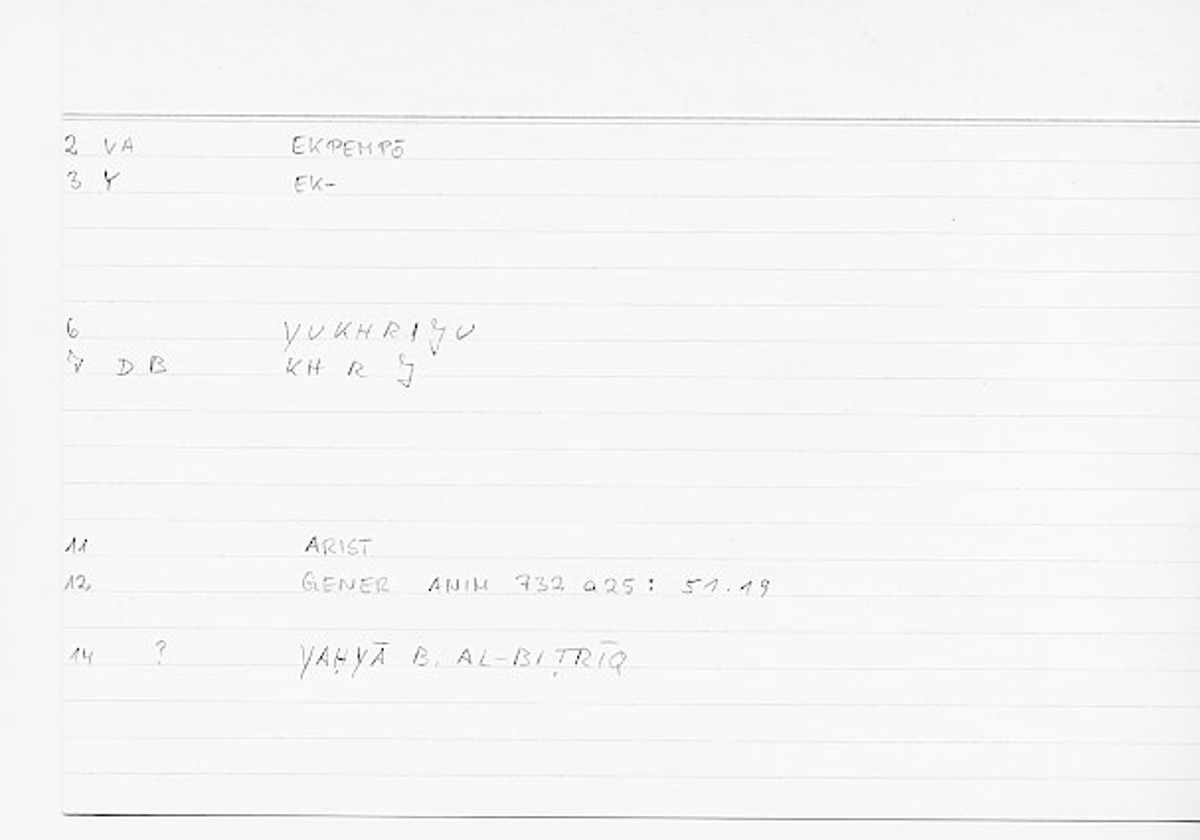 2 VA EKPEMPŌ
3 Y EK-
6 YUKHRIJU
7 D B KH R J
11 ARIST
12 GENER ANIM 732 a25: 51.19
14 ? YAḤYĀ B. AL-BIṬRĪQ